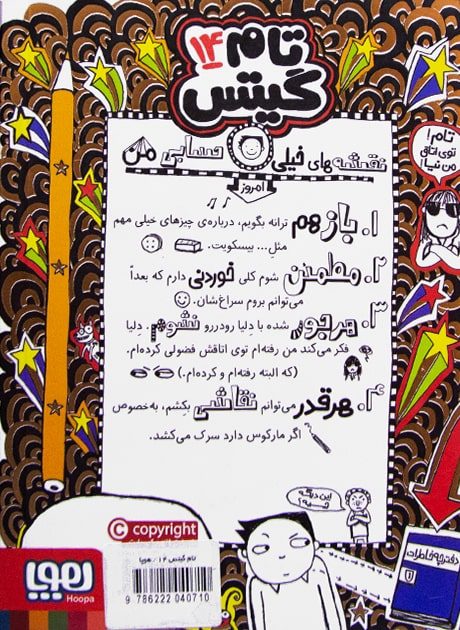 تام ۱۴
گیتس
نقشه‌های خیلی حسابی من
امروز
تام!
توی اتاق
من نیا!
۱. بازهم ترانه بگویم، درباره‌ی چیزهای خیلی مهم
مثلِ... بیسکویت.
۲. مطمئن شوم کلی خوردنی دارم که بعداً
می‌توانم بروم سراغ‌شان.
۳. هرجور شده با دِلیا رودررو نشوم. دِلیا
فکر می‌کند من رفته‌ام توی اتاقش فضولی کرده‌ام.
(که البته رفته‌ام و کرده‌ام.)
۴. هرقدر می‌توانم نقاشی بکِشم، به‌خصوص
اگر مارکوس دارد سرک می‌کشد.
این دیگه
چیه؟
دفترچه خاطرات
C copyright
تام گیتس ۱۴ - هوپا
9786222040710
هوپا
Hoopa